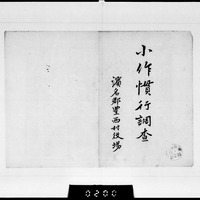 小作慣行調査
濱名郡豊西村役場
0200